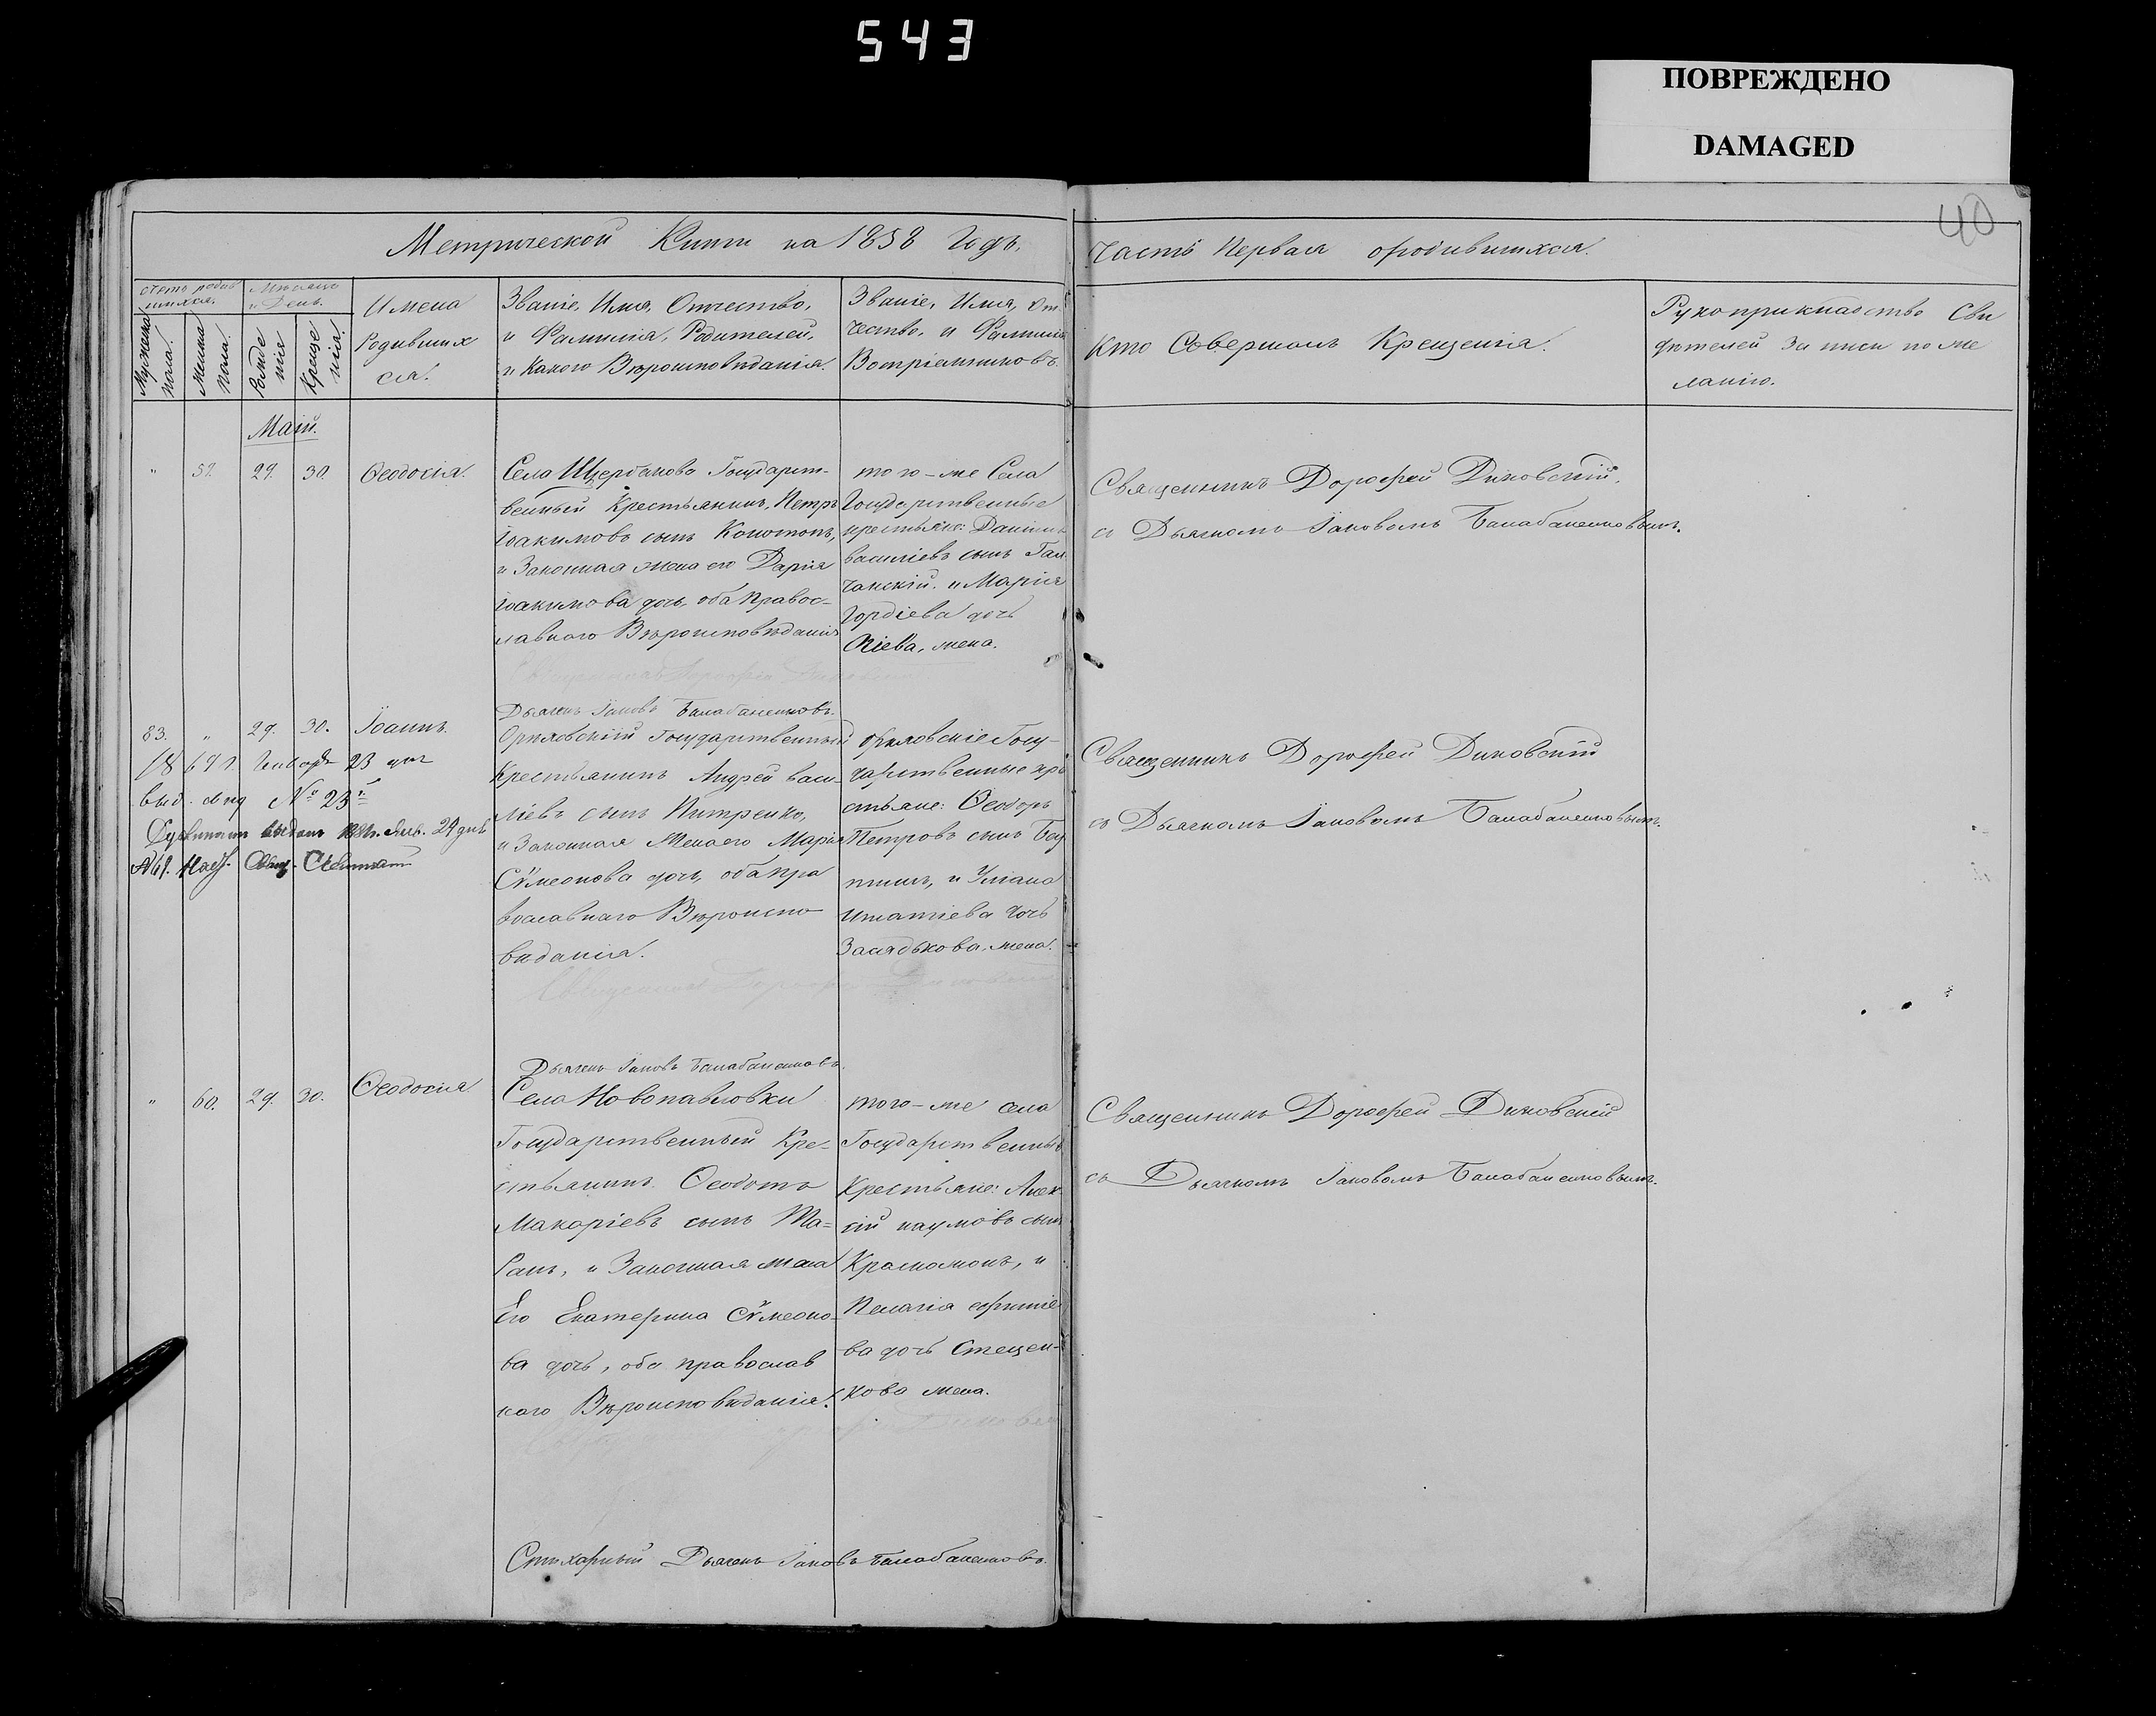 543
ПОВРЕЖДЕНО
DAMAGED
40
Метрической Книги на 1858 Годъ,
Часть Первая о родившихся.
Счетъ родив
шихся.
Мѣсяцъ
и День.
Мужеска
пола.
Женска
пола.
Рожде
нія
Креще
нія.
Имена
Родивших
ся.
Званіе, Имя, Отчество,
и Фамилія, Родителей,
и Какого Вѣроисповиданія.
Званіе, Имя, От
чество, и Фамилія
Вопріемниковъ.
Кто Совершалъ Крещенія.
Рукоприкладство Сви
дѣтелей За писи по же
ланію.
Маій.
" 59. 29. 30. Ѳеодосія.
Села Щербакова Государст-
венный Крестьянинъ, Петръ
Іоакимовъ сынъ Конотопъ,
и Законная жена его Дарія
Іоакимова дочь, оба Правос-
лавного Вѣроисповѣданія
того-же Села
Государственные
крестьяне: Даніилъ
василіевъ сынъ Гал
чанскій. и Марія
Гордіева дочь
жена.
Священникъ Дорофей Диковскій,
съ Дьячкомъ Іаковомъ Балабаненковымъ.
Дьячекъ Іаковъ Балабаненковъ.
83. " 29. 30. Іоаннъ.
Января 23 дня
выд. № 23
выданъ Янв. 29 дня
Орѣховскій Государственный
Крестьянинъ Андрей васи-
ліевъ сынъ Питренко,
и Законная Жена его Марія
Сѵмеонова дочь, оба пра
вославнаго Вѣроиспо
виданія.
Орѣховскіе Госу-
дарственные кре
стьяне: Ѳеодоръ
Петровъ сынъ
и Уліана
Игнатіева дочь
Засядькова, жена.
Священникъ Дорофей Диковскій
съ Дьячкомъ Іаковомъ Балабаненковымъ.
Дьячекъ Іаковъ Балабаненковъ.
" 60. 29. 30. Ѳеодосія
Села Новопавловки
Государственный Кре-
стьянинъ Ѳеодотъ
Макаріевъ сынъ Та-
ранъ, и Законная жена
Его Екатерина Сѵмеоно-
ва дочь, оба православ
ного Вѣроисповиданія.
того-же села
Государственные
Крестьяне: Алек
сій наумовъ сынъ
и
Пелагія
ва дочь Стецен-
кова жена.
Священникъ Дорофей Диковскій
съ Дьячкомъ Іаковомъ Балабаненковымъ.
Стихарный Дьячекъ Іаковъ Балабаненковъ.